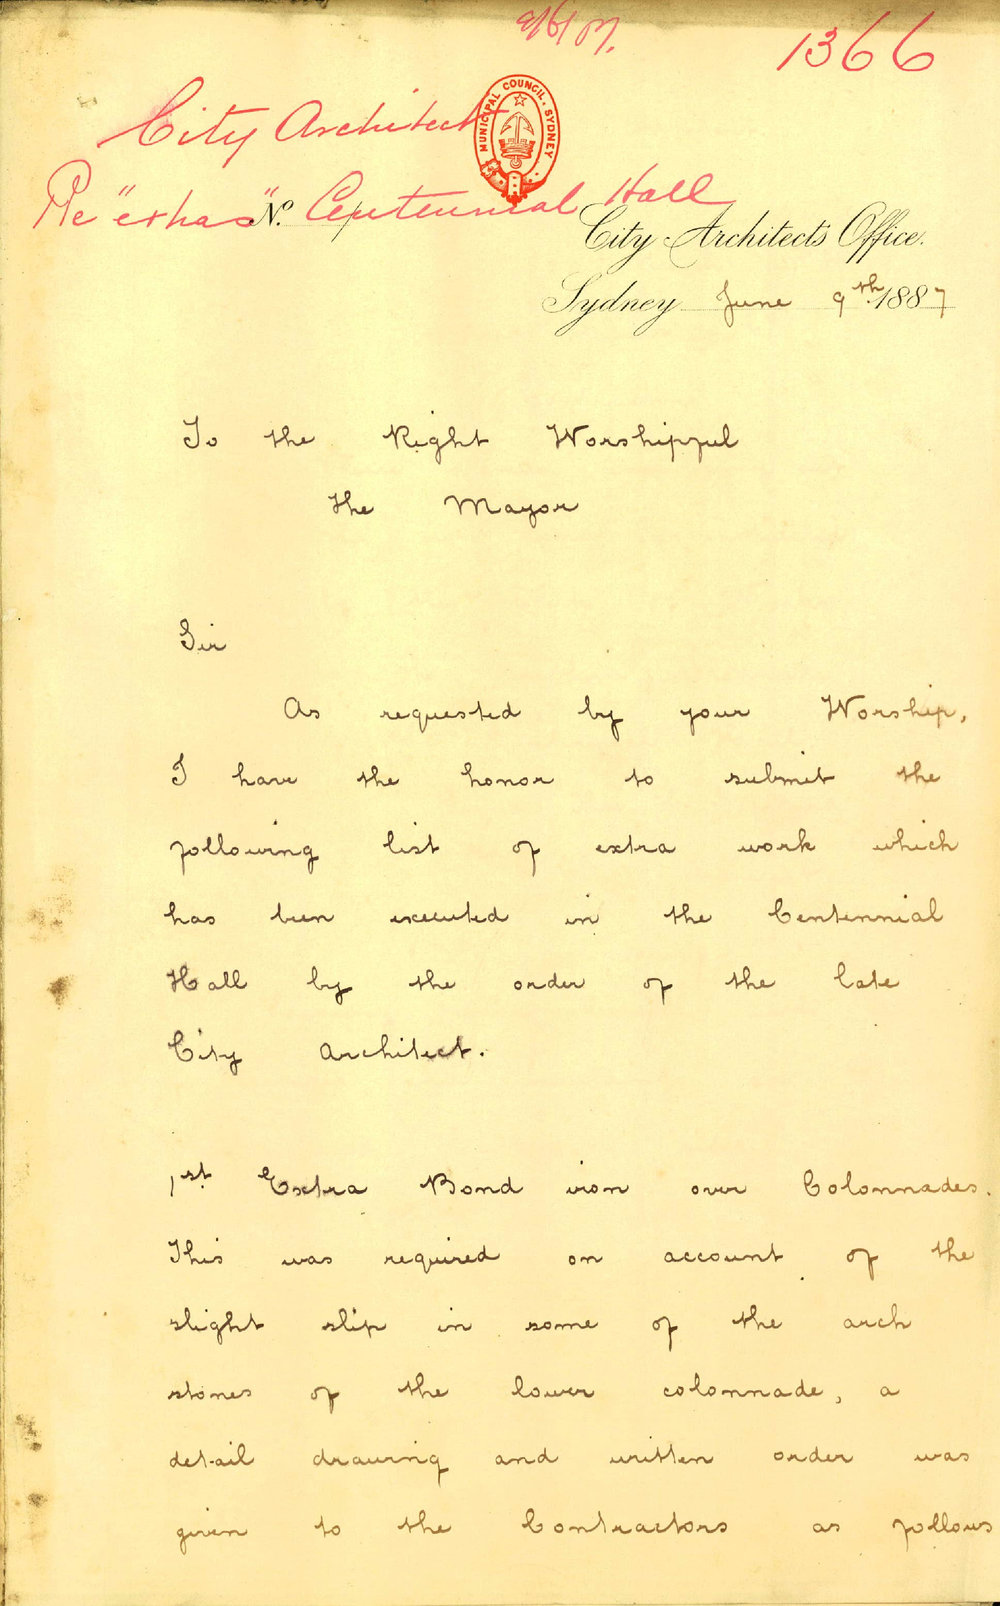 1366
City Architect
MUNICIPAL COUNCIL. SYDNEY
Re "extras" Centennial Hall
No.
City Architects Office.
Sydney June 9th 1887
To the Right Worshipful
the Mayor
Sir
As requested by your Worship,
I have the honor to submit the
following list of extra work which
has been executed in the Centennial
Hall by the order of the late
City Architect.
1st Extra Bond iron over Colonnades.
This was required on account of the
slight slip in some of the arch
stones of the lower colonnade, a
detail drawing and written order was
given to the Contractors as follows